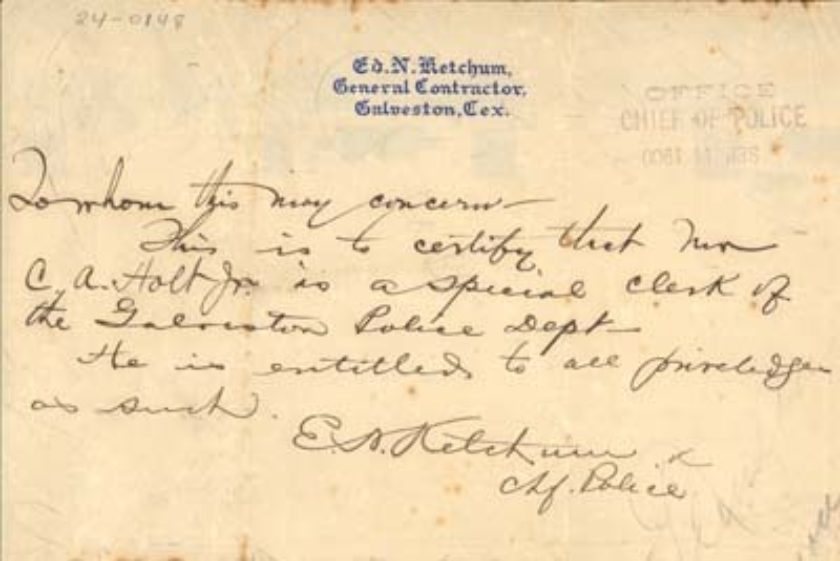 24-0148
Ed. N. Ketchum,
General Contractor,
Galveston, Tex.
OFFICE
CHIEF OF POLICE
To whom this may concern—
This is to certify that Mr
C. A. Holt Jr. is a special clerk of
the Galveston Police Dept—
He is entitled to all priveledges
as such.
E. N. Ketchum
Chf. Police